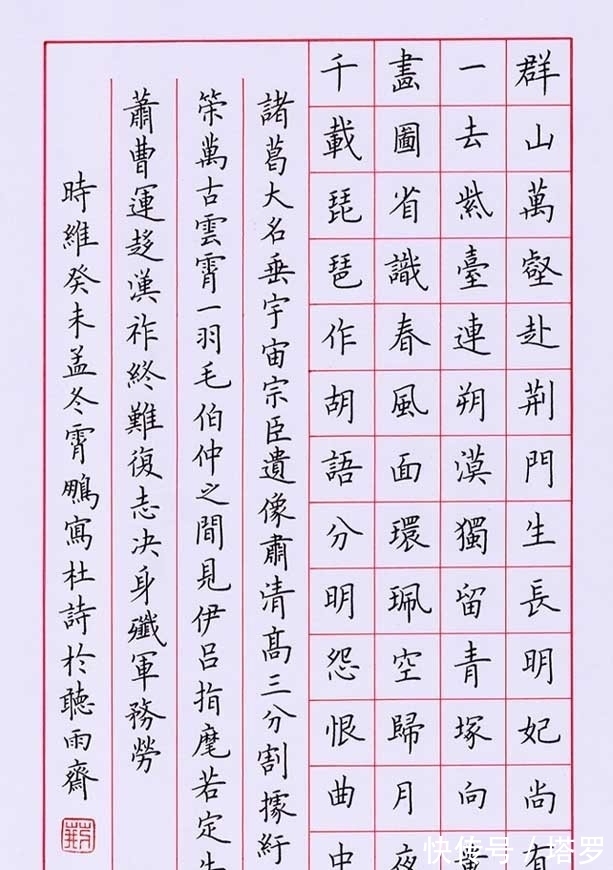 群山萬壑赴荆門生長明妃尚有
一去紫臺連朔漠獨留青塚向
畫圖省識春風面環珮空歸月夜
千載琵琶作胡語分明怨恨曲中
諸葛大名垂宇宙宗臣遺像肅清高三分割據紆
策萬古雲霄一羽毛伯仲之間見伊吕指麾若定
蕭曹運移漢祚終難復志决身殲軍務勞
時維癸未孟冬霄鵬寫杜詩於聽雨齋
快传号 / 塔罗